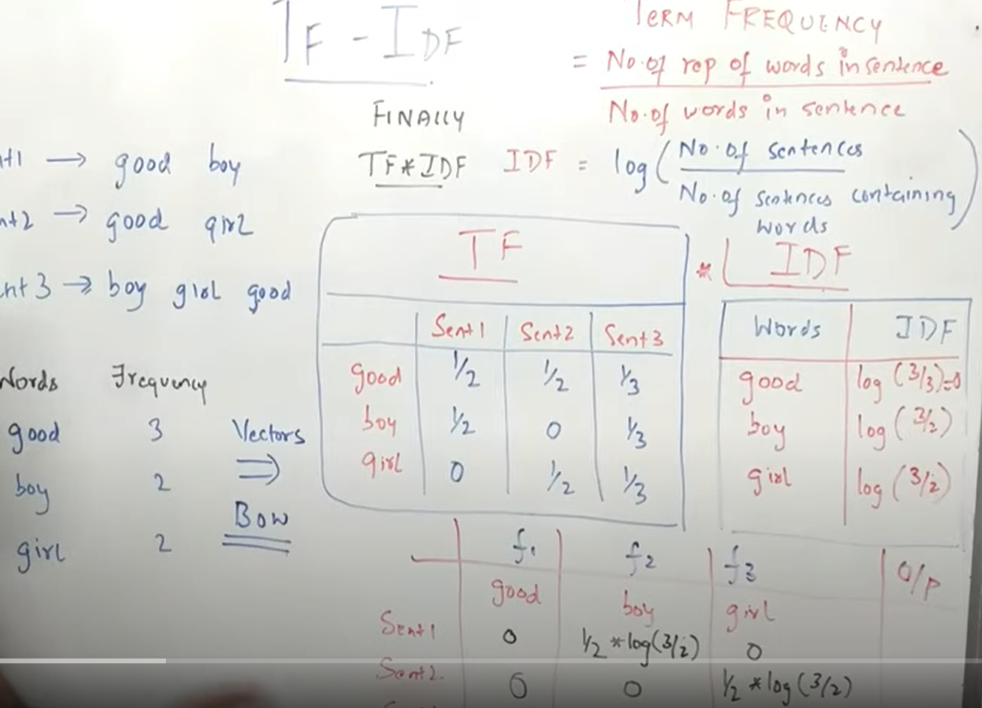 TF - IDF
TERM FREQUENCY
= No. of rep of words in sentence
No. of words in sentence
FINALLY
TF*IDF
IDF = log (No. of sentences
No. of sentences containing
words)
nt1 → good boy
nt2 → good girl
ent 3 → boy girl good
Words Frequency
good 3
boy 2
girl 2
Vectors
⇒
BOW
TF
Sent1 Sent2 Sent3
good 1/2 1/2 1/3
boy 1/2 0 1/3
girl 0 1/2 1/3
* IDF
Words IDF
good log (3/3)=0
boy log (3/2)
girl log (3/2)
f1 f2 f3 O/P
good boy girl
Sent1 0 1/2 *log(3/2) 0
Sent2. 0 0 1/2 *log(3/2)